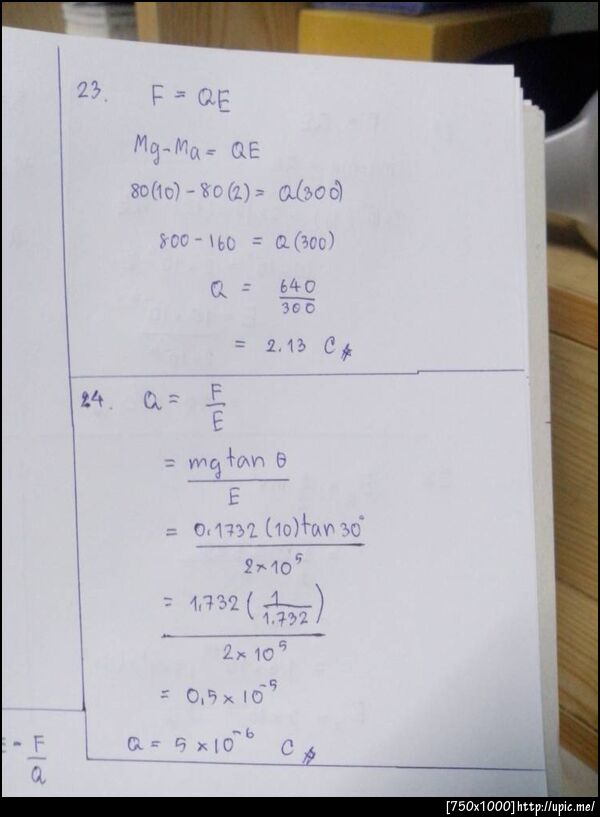 23. F = QE
Mg-Ma = QE
80(10) - 80(2) = Q(300)
800-160 = Q(300)
Q = 640/300
= 2.13 C
24. Q = F/E
= mg tan θ / E
= 0.1732(10)tan 30° / 2×10⁵
= 1.732 (1/1.732) / 2×10⁵
= 0.5×10⁻⁵
Q = 5×10⁻⁶ C
= F/Q
[750x1000]http://upic.me/